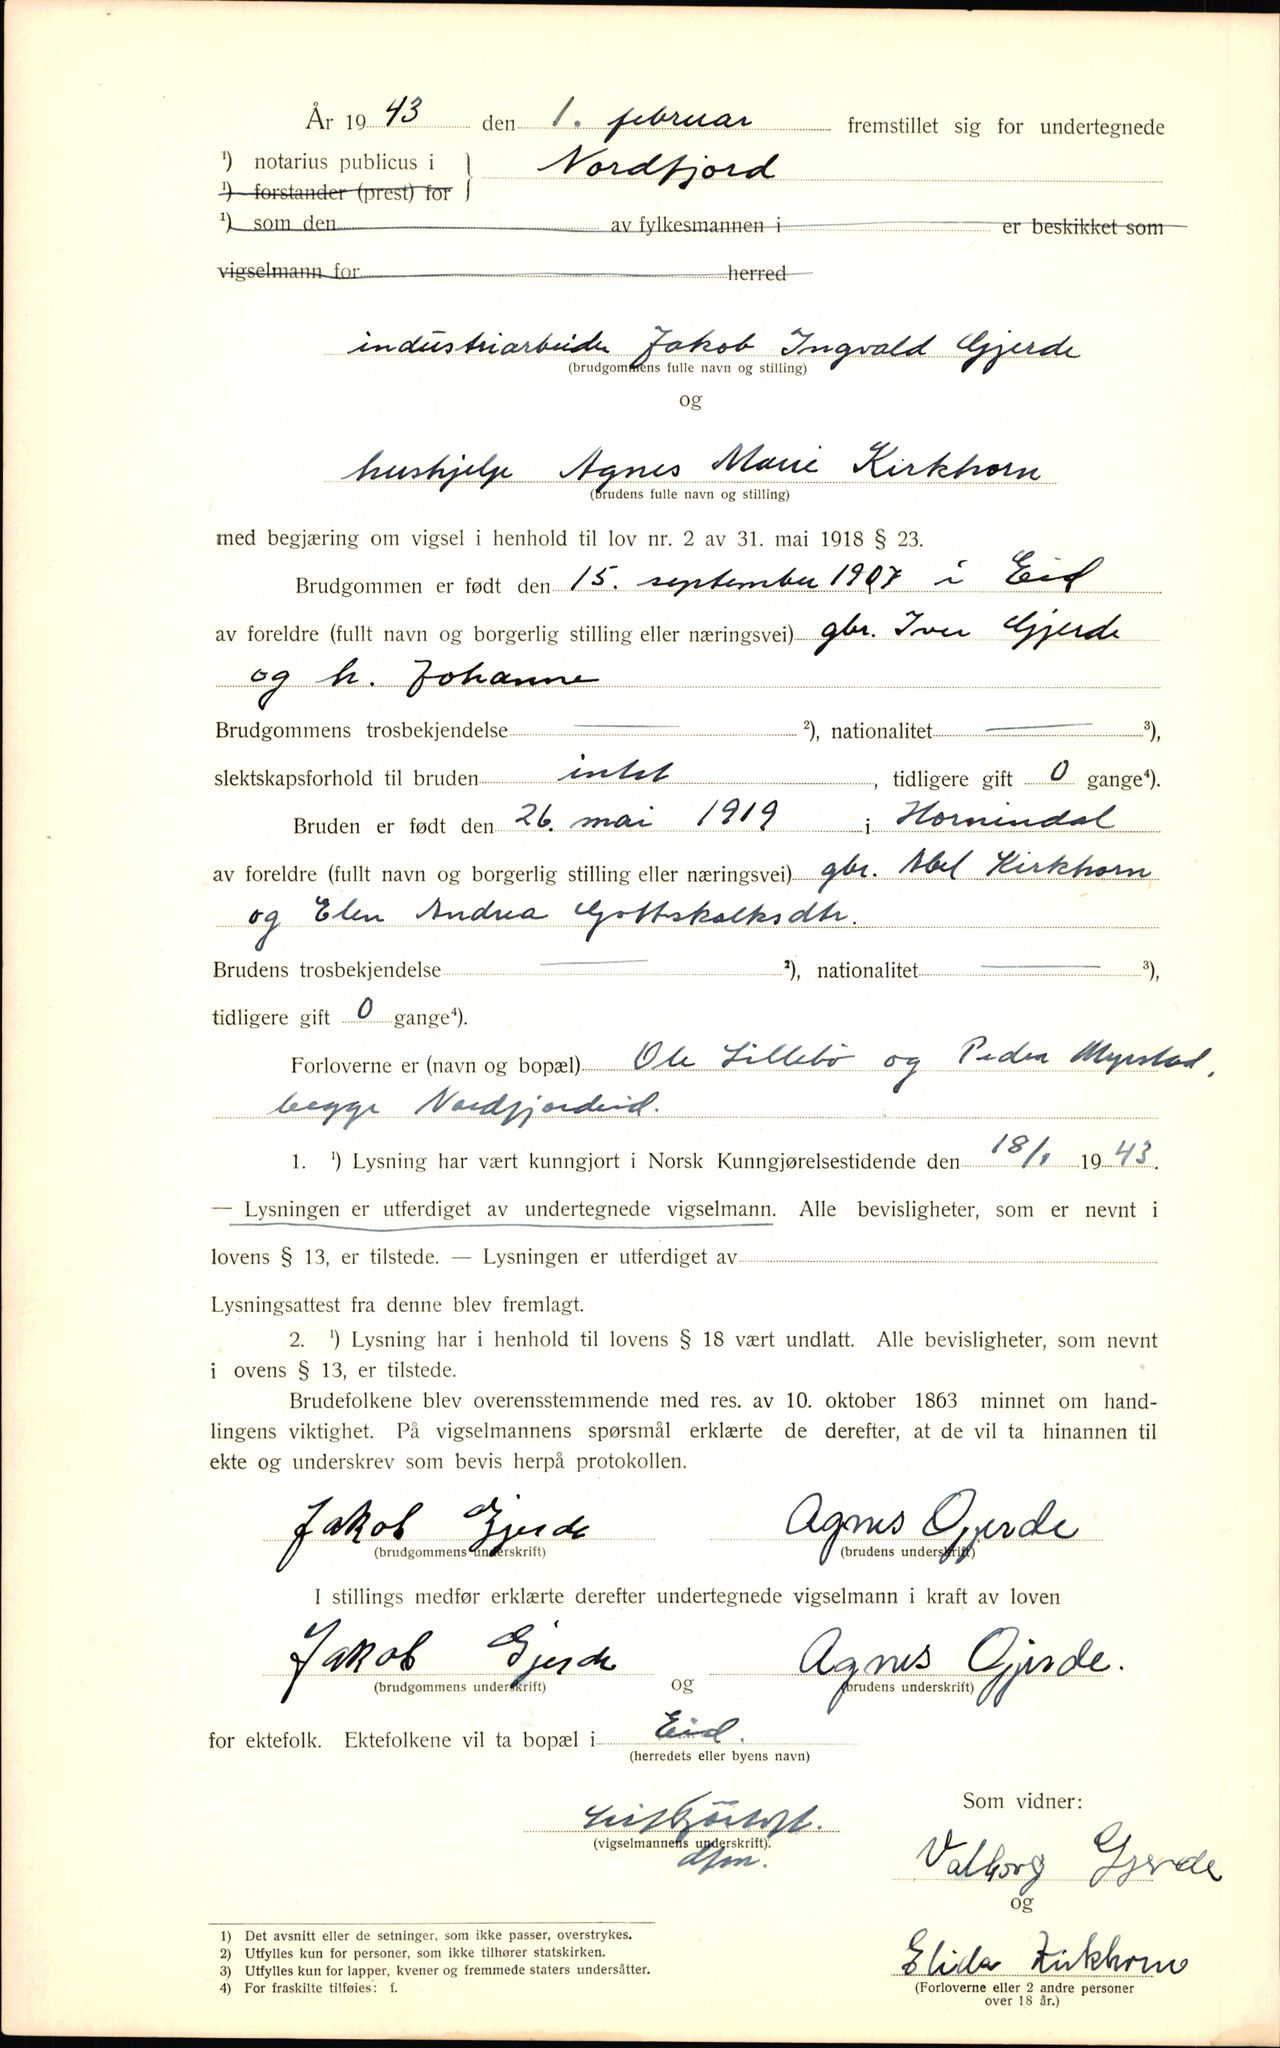 År 1943 den 1. februar fremstillet sig for undertegnede
¹) notarius publicus i } Nordfjord
¹) forstander (prest) for
¹) som den av fylkesmannen i er beskikket som
vigselmann for herred
industriarbeider Jakob Ingvald Gjerde
(brudgommens fulle navn og stilling)
og
hushjelp Agnes Marie Kirkhorn
(brudens fulle navn og stilling)
med begjæring om vigsel i henhold til lov nr. 2 av 31. mai 1918 § 23.
Brudgommen er født den 15. september 1907 i Eid
av foreldre (fullt navn og borgerlig stilling eller næringsvei) gbr. Iver Gjerde
og h. Johanne
Brudgommens trosbekjendelse ²), nationalitet ³),
slektskapsforhold til bruden intet, tidligere gift 0 gange⁴).
Bruden er født den 26. mai 1919 i Hornindal
av foreldre (fullt navn og borgerlig stilling eller næringsvei) gbr. Abel Kirkhorn
og Elen Andrea Gottskalksdtr.
Brudens trosbekjendelse ²), nationalitet ³),
tidligere gift 0 gange⁴).
Forloverne er (navn og bopæl) Ole Lillebö og Peder Myrstad,
begge Nordfjordeid.
1. ¹) Lysning har vært kunngjort i Norsk Kunngjørelsestidende den 18/1 1943.
— Lysningen er utferdiget av undertegnede vigselmann. Alle bevisligheter, som er nevnt i
lovens § 13, er tilstede. — Lysningen er utferdiget av
Lysningsattest fra denne blev fremlagt.
2. ¹) Lysning har i henhold til lovens § 18 vært undlatt. Alle bevisligheter, som nevnt
i ovens § 13, er tilstede.
Brudefolkene blev overensstemmende med res. av 10. oktober 1863 minnet om hand-
lingens viktighet. På vigselmannens spørsmål erklærte de derefter, at de vil ta hinannen til
ekte og underskrev som bevis herpå protokollen.
Jakob Gjerde Agnes Gjerde
(brudgommens underskrift) (brudens underskrift)
I stillings medfør erklærte derefter undertegnede vigselmann i kraft av loven
Jakob Gjerde Agnes Gjerde.
(brudgommens underskrift) og (brudens underskrift)
for ektefolk. Ektefolkene vil ta bopæl i Eid.
(herredets eller byens navn)
Som vidner:
(vigselmannens underskrift).
Valborg Gjerde
og
Elida Kirkhorn
(Forloverne eller 2 andre personer
over 18 år.)
1) Det avsnitt eller de setninger, som ikke passer, overstrykes.
2) Utfylles kun for personer, som ikke tilhører statskirken.
3) Utfylles kun for lapper, kvener og fremmede staters undersåtter.
4) For fraskilte tilføies: f.